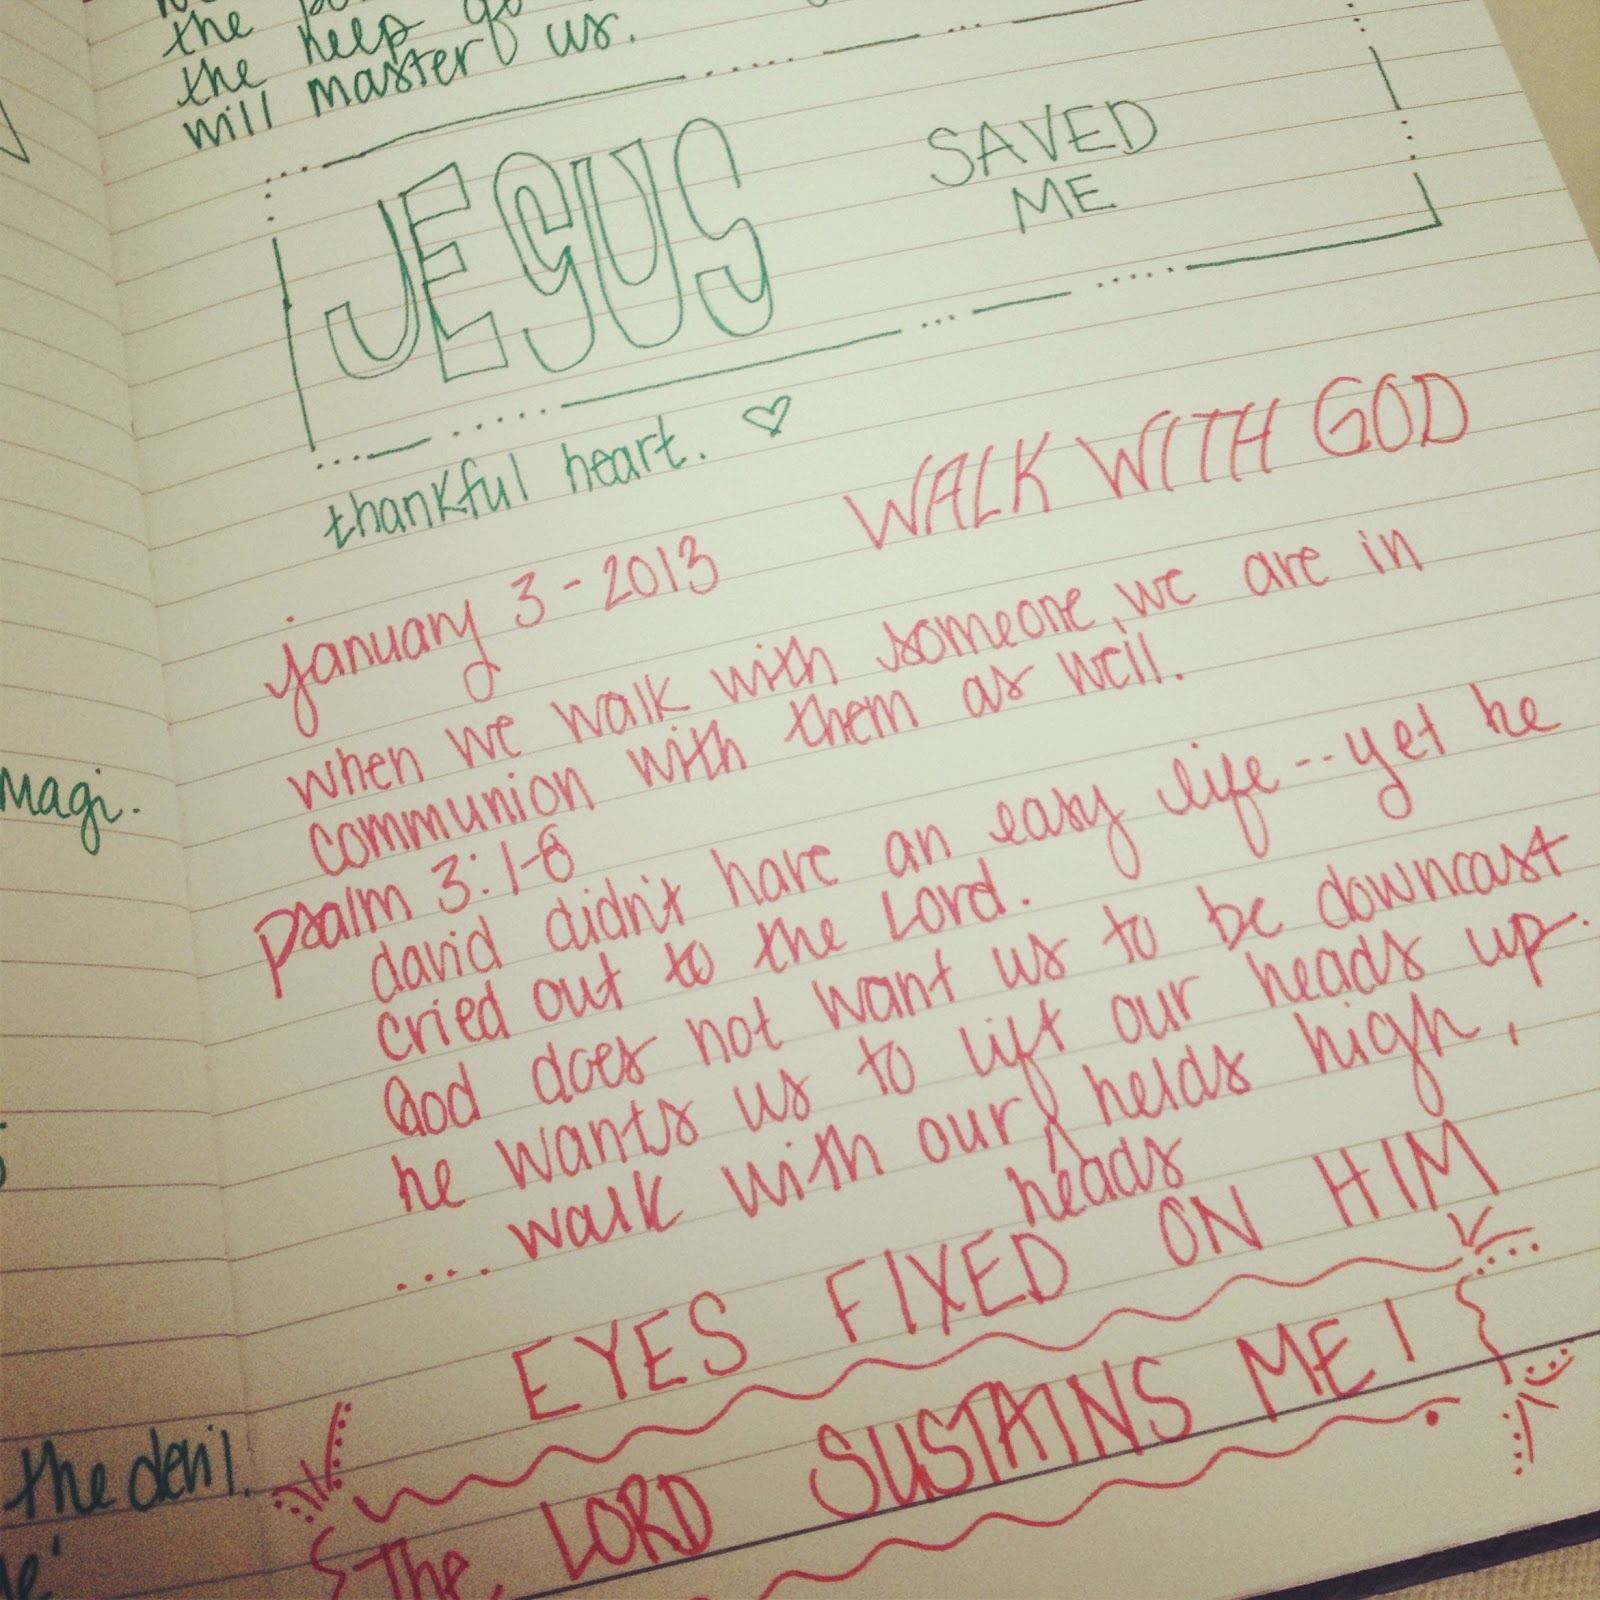 the
the help
will master us.
JESUS SAVED
ME
thankful heart. ♡
january 3-2013 WALK WITH GOD
when we walk with someone, we are in
communion with them as well.
psalm 3:1-8
david didn't have an easy life...yet he
cried out to the Lord.
God does not want us to be downcast
he wants us to lift our heads up.
.... walk with our helds high,
heads
EYES FIXED ON HIM
The LORD SUSTAINS ME!
Magi.
the devil.